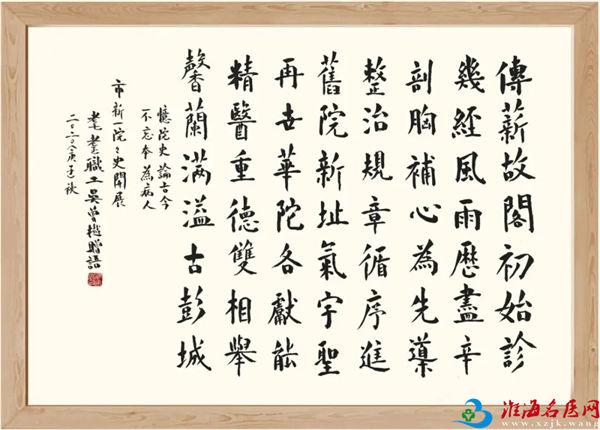 傳薪故閣初始診
幾經風雨歷盡辛
剖胸補心為先導
整治規章循序進
舊院新址氣宇聖
再世華陀各獻能
精醫重德雙相舉
馨蘭滿溢古彭城
憶院史論古今
不忘本為病人
市新一院々史開展
耄耋職工吳曾樾贈語
二〇二〇庚子秋
淮海名医网
www.xzjk.wang